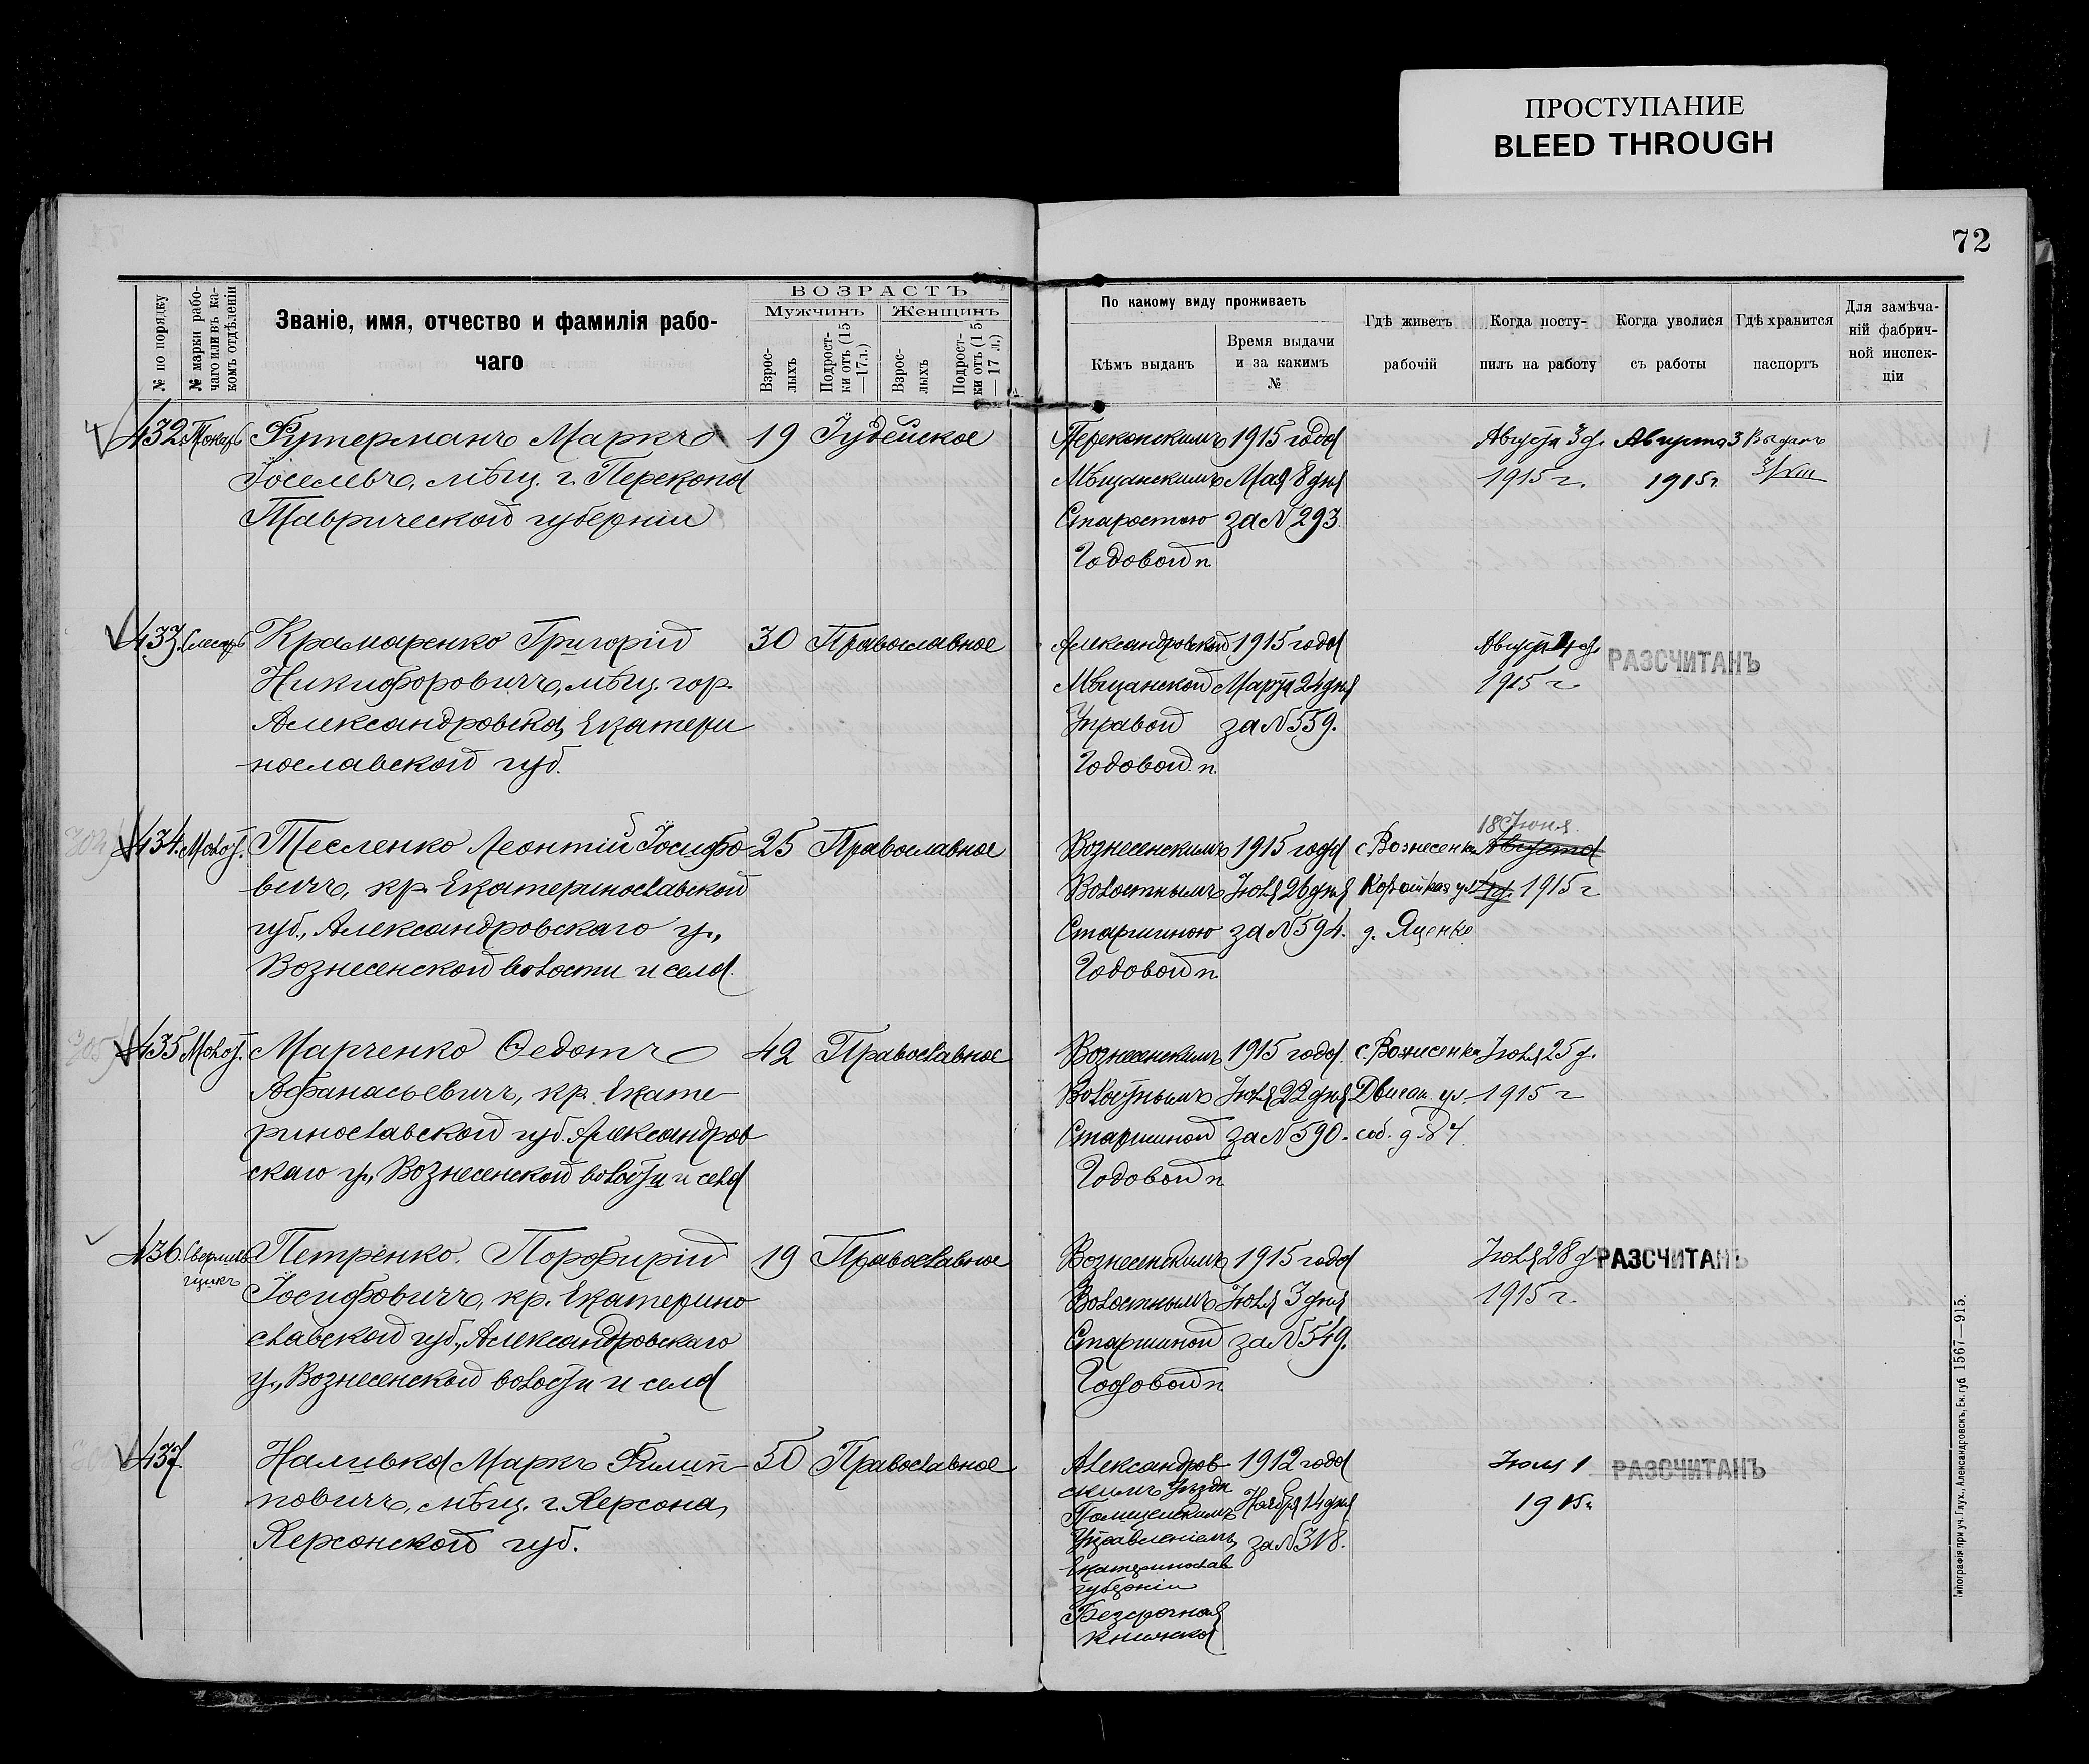 ПРОСТУПАНИЕ
BLEED THROUGH
72
№ по порядку
№ марки рабо-
чаго или въ ка-
комъ отдѣленіи
Званіе, имя, отчество и фамилія рабо-
чаго
ВОЗРАСТЪ
Мужчинъ
Женщинъ
Взрос-
лыхъ
Подрост-
ки отъ (15
—17 л.)
Взрос-
лыхъ
Подрост-
ки отъ (15
— 17 л.)
По какому виду проживаетъ
Кѣмъ выданъ
Время выдачи
и за какимъ
№
Гдѣ живетъ
рабочій
Когда посту-
пилъ на работу
Когда уволися
съ работы
Гдѣ хранится
паспортъ
Для замѣча-
ній фабрич-
ной инспек-
ціи
432 Токарь Футерманъ Маркъ 19 Іудейское
Іоселевъ, мѣщ. г. Перекопа
Таврической губерніи
Перекопскимъ 1915 года
Мѣщанскимъ Мая 8 дня
Старостою за N 293.
Годовой п.
Августа 3 д.
1915 г.
Августа 3
1915 г.
Выданъ
3/VIII
433. Слесарь Крамаренко Григорій 30 Православное
Никифоровичъ, мѣщ. гор.
Александровска, Екатери
нославской губ.
Александровской 1915 года
Мѣщанской Марта 24 дня
Управой за N 559.
Годовой п.
Августа 4 д.
1915 г.
РАЗСЧИТАНЪ
434. Молот. Тесленко Леонтій Іосифо 25 Православное
вичъ, кр. Екатеринославской
губ., Александровскаго у.,
Вознесенской волости и села.
Вознесенскимъ 1915 года
Волостнымъ Іюля 26 дня
Старшиною за N 594.
Годовой п.
с. Вознесенка
д. Яценко
18 Іюня
Августа
4 д. 1915 г
435 Молот. Марченко Ѳедотъ 42 Православное
Афанасьевичъ, кр. Екате-
ринославской губ. Александров
скаго у., Вознесенской волости и села
Вознесенскимъ 1915 года.
Волостнымъ Іюля 22 дня
Старшиной за N 590.
Годовой п
с. Вознесенка
соб. д. 84
Іюля 25 д.
1915 г
436. Сверлиль
щикъ
Петренко Порфирій 19 Православное
Іосифовичъ, кр. Екатерино
славской губ., Александровскаго
у., Вознесенской волости и села
Вознесенскимъ 1915 года
Волостнымъ Іюля 3 дня
Старшиной за N 549.
Годовой п
Іюля 28 д.
1915 г.
РАЗСЧИТАНЪ
437. Маркъ Филип- 50 Православное
повичъ, мѣщ. г. Херсона,
Херсонской губ.
Александров- 1912 года
скимъ Уѣздн
Полицейскимъ Ноября 14 дня
Управленіемъ за N 318.
Екатеринослав
губерніи
Безсрочная
книжка
Іюля 1
1915 г.
РАЗСЧИТАНЪ
Типографія при уч. Глух., Александровскъ, Ек. губ. 1567—915.